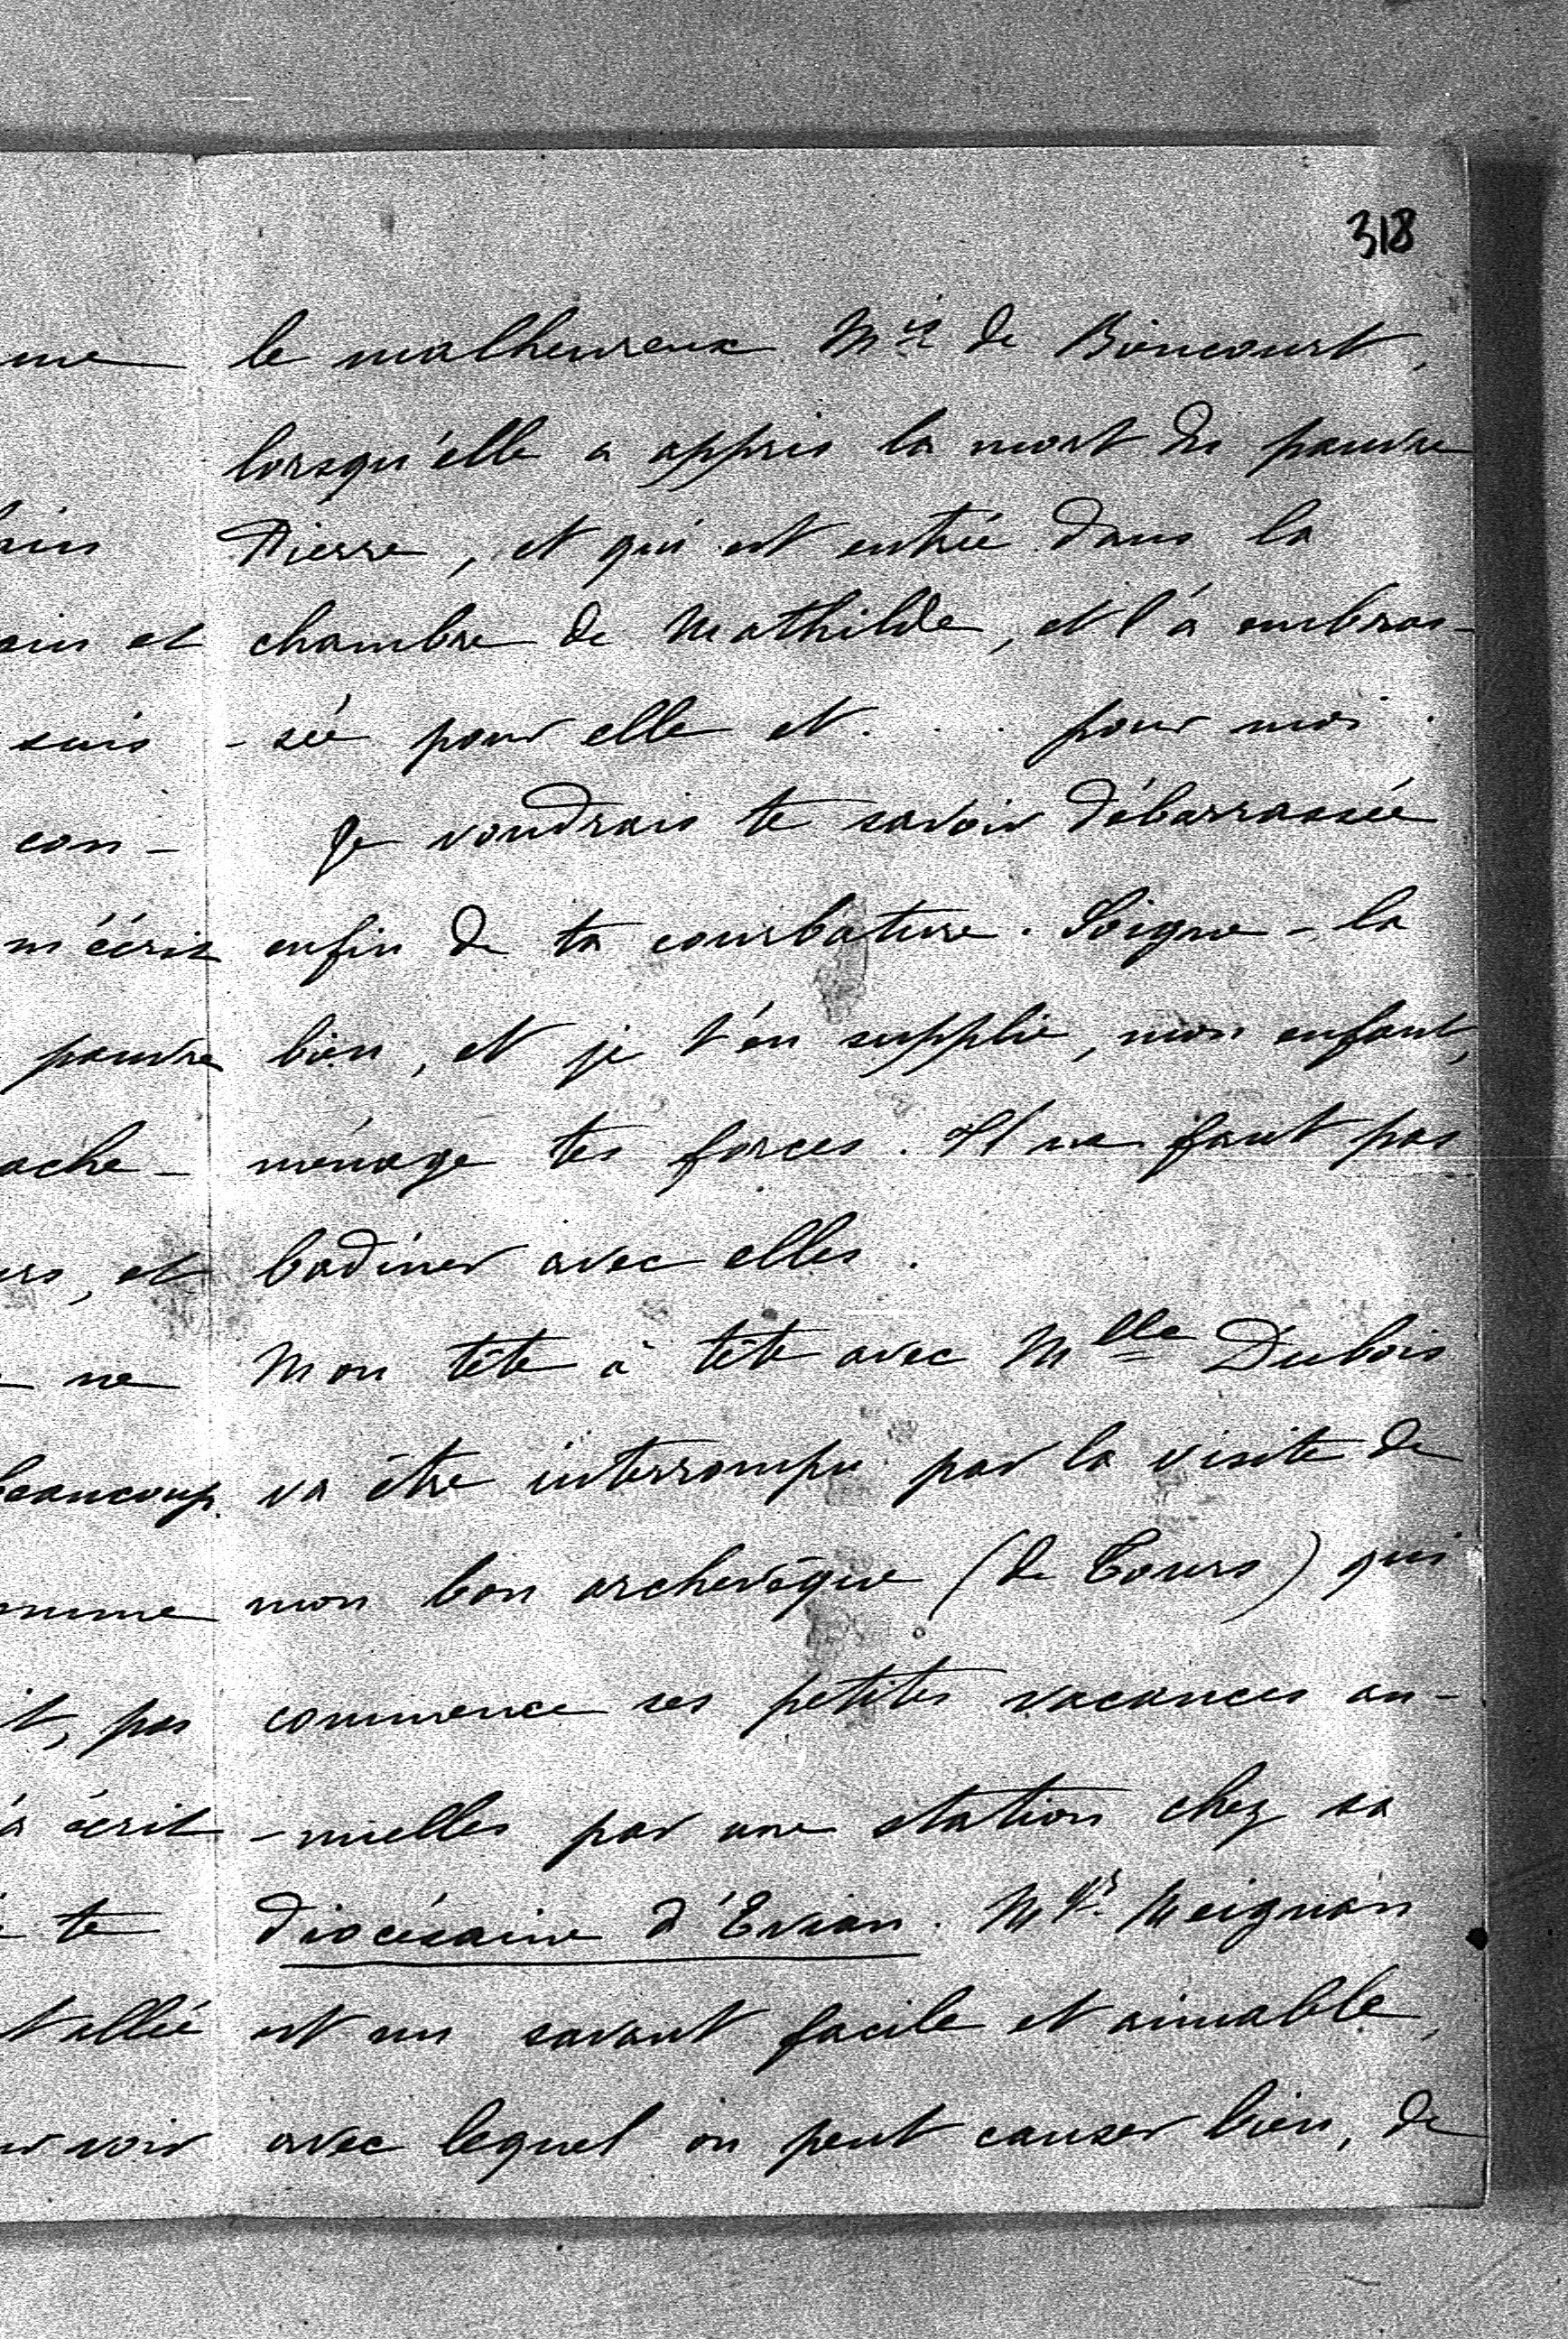 318
le malheureux Mis de Biencourt,
lorsqu'elle a appris la mort du pauvre
Pierre, et qui est entrée dans la
chambre de Mathilde, et l'a embras-
-sée pour elle et . . . pour moi.
Je voudrais te savoir débarrassée
enfin de ta courbature. Soigne-la
bien, et je t'en supplie, mon enfant,
ménage tes forces. Il ne faut pas
badiner avec elles.
Mon tête à tête avec Mlle Dubois
va être interrompu par la visite de
mon bon archevêque (de Tours) qui
commence ses petites vacances an-
-nuelles par une station chez sa
diocésaine d'Evian. Mgr. Meignan
est un savant facile et aimable,
avec lequel on peut causer bien, de
me
ein et
suis
con-
m'écrit
pauvre
ache-
urs, et
ne
beaucoup
omme
it, pas
a écrit
te
t allée
voir